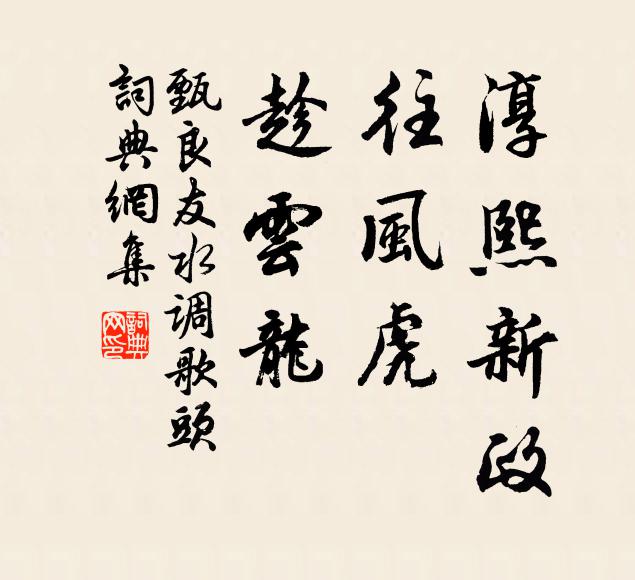 淳熙新政
往風虎
趁雲龍
甄良友水调歌頭
詞典網集
詞典网印